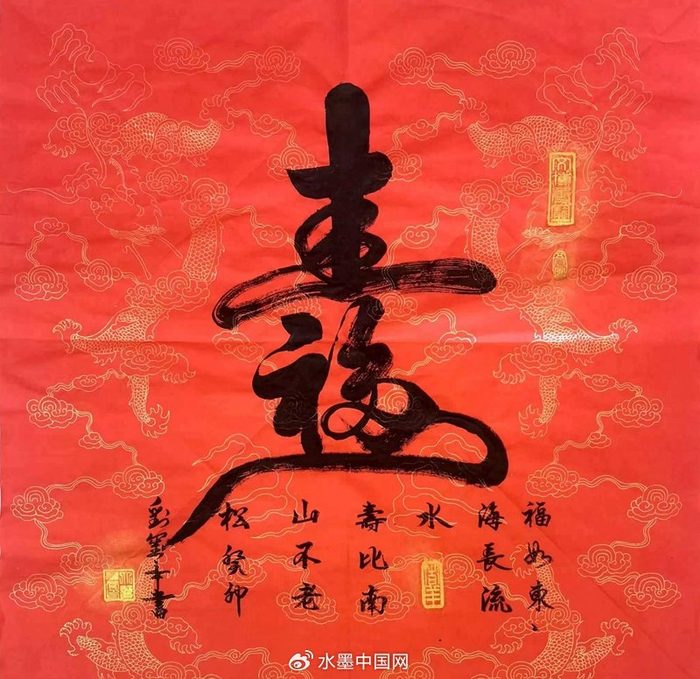 壽
福如東
海長流
水
壽比南
山不老
松癸卯
書
水墨中国网